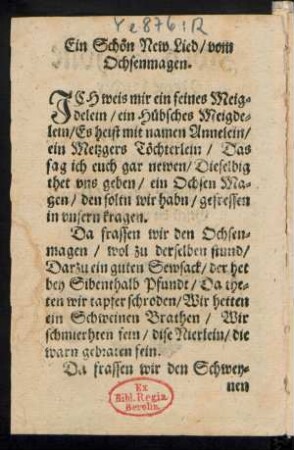 Ye 876 : R
Ein Schön New Lied / vom
Ochsenmagen.
ICH weis mir ein feines Meig-
delein / ein Hübsches Meigde-
lein / Es heist mit namen Annelein /
ein Metzgers Töchterlein / Das
sag ich euch gar newen / Dieselbig
thet vns geben / ein Ochsen Ma-
gen / den soltn wir habn / gefressen
in vnsern kragen.
Da frassen wir den Ochsen-
magen / wol zu derselben stund /
Darzu ein guten Sewsack / der het
bey Sibenthalb Pfundt / Da the-
ten wir tapfer schroden / Wir hetten
ein Schweinen Brathen / Wir
schmierhten fein / dise Nierlein / die
warn gebraten fein.
Da frassen wir den Schwey-
nen
Ex
Bibl. Regia
Berolin.